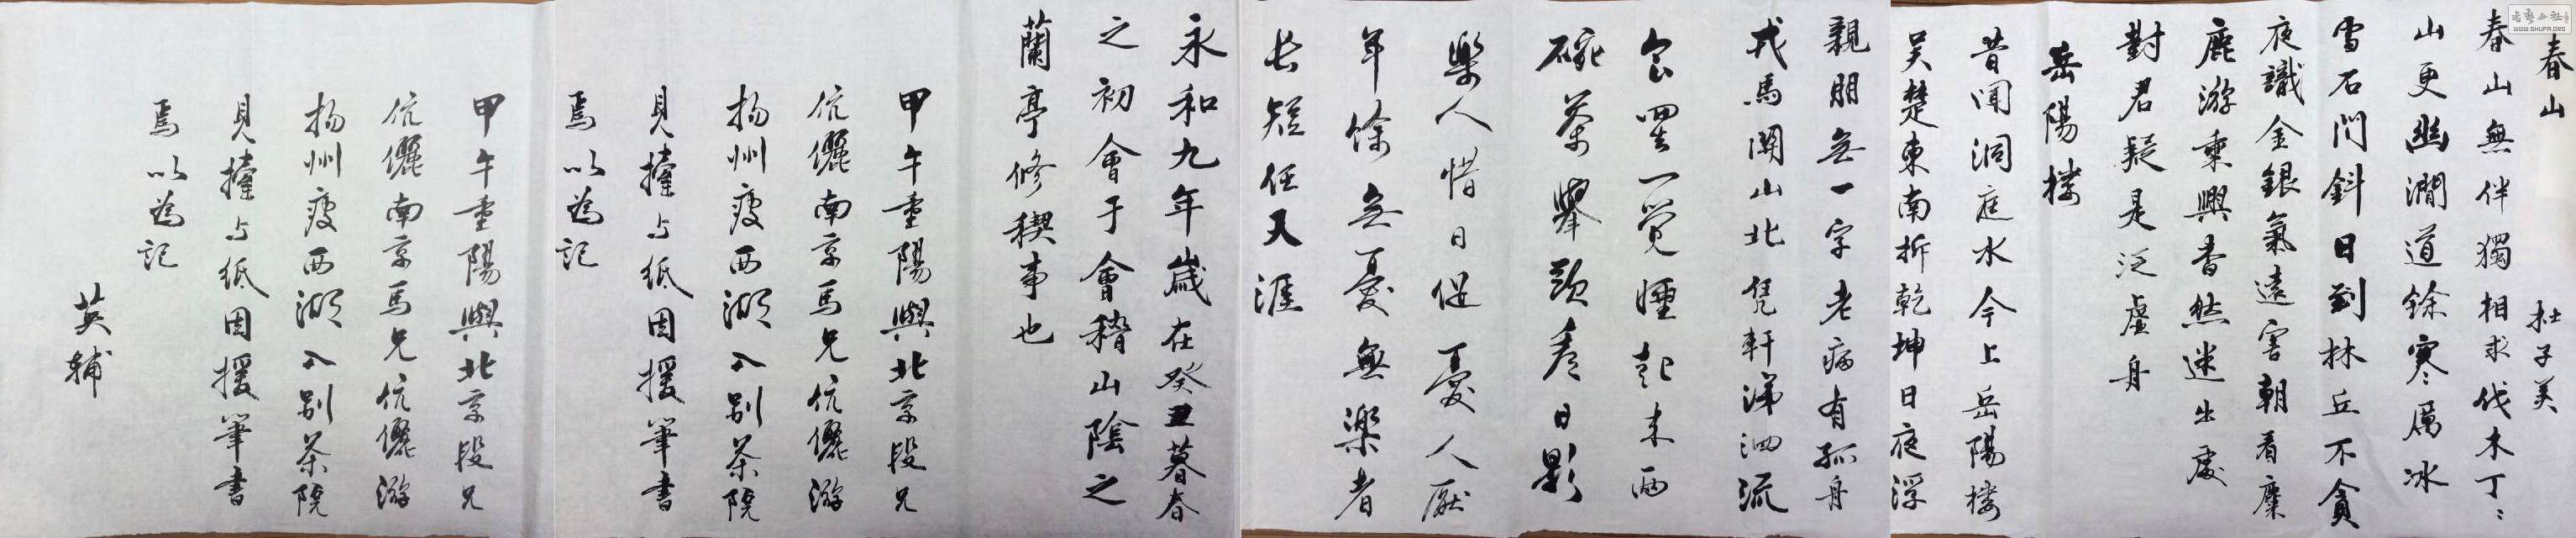 春山
杜子美
春山無伴獨相求伐木丁〻
山更幽澗道餘寒厲冰
雪石門斜日到林丘不貪
夜識金銀氣遠害朝看麋
鹿游乘興杳然迷出處
對君疑是泛虛舟
岳陽樓
昔聞洞庭水今上岳陽樓
吳楚東南拆乾坤日夜浮
親朋無一字老病有孤舟
戎馬關山北凭軒涕泗流
食罷一覺睡起來兩
碗茶舉頭看日影
樂人惜日促憂人厭
年馀無憂無樂者
長短任天涯
永和九年歲在癸丑暮春
之初會于會稽山陰之
蘭亭修稧事也
甲午重陽與北京段兄
伉儷南京馬兄伉儷游
揚州瘦西湖入别茶院
見擡与紙因援筆書
焉以為記
甲午重陽與北京段兄
伉儷南京馬兄伉儷游
揚州瘦西湖入别茶院
見擡与紙因援筆書
焉以為記
英輔
WWW.SHUFA.ORG